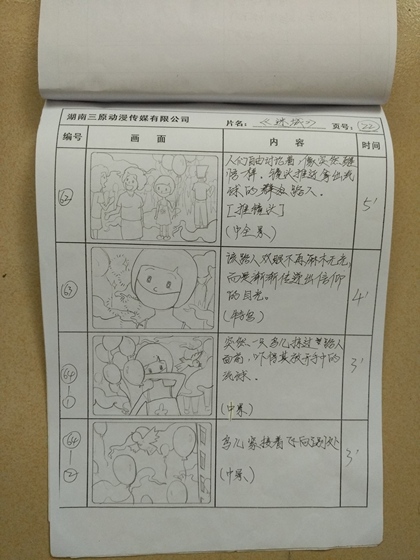 湖南三原动漫传媒有限公司
片名: 页号: 22
编号 画面 内容 时间
62
人们自由讨论着,像突然
一样。镜头推近拿出气
球的路人.
[推镜头]
(中全景)
5'
63
该路人双眼不再麻木无光
而是渐渐传递出信仰
的目光.
(特写)
4'
64-1
突然,一只鸟儿掠过路人
面前,吓得其放开手中的
气球.
(中景)
3'
64-2
鸟儿接着飞向别处
(中景)
3'